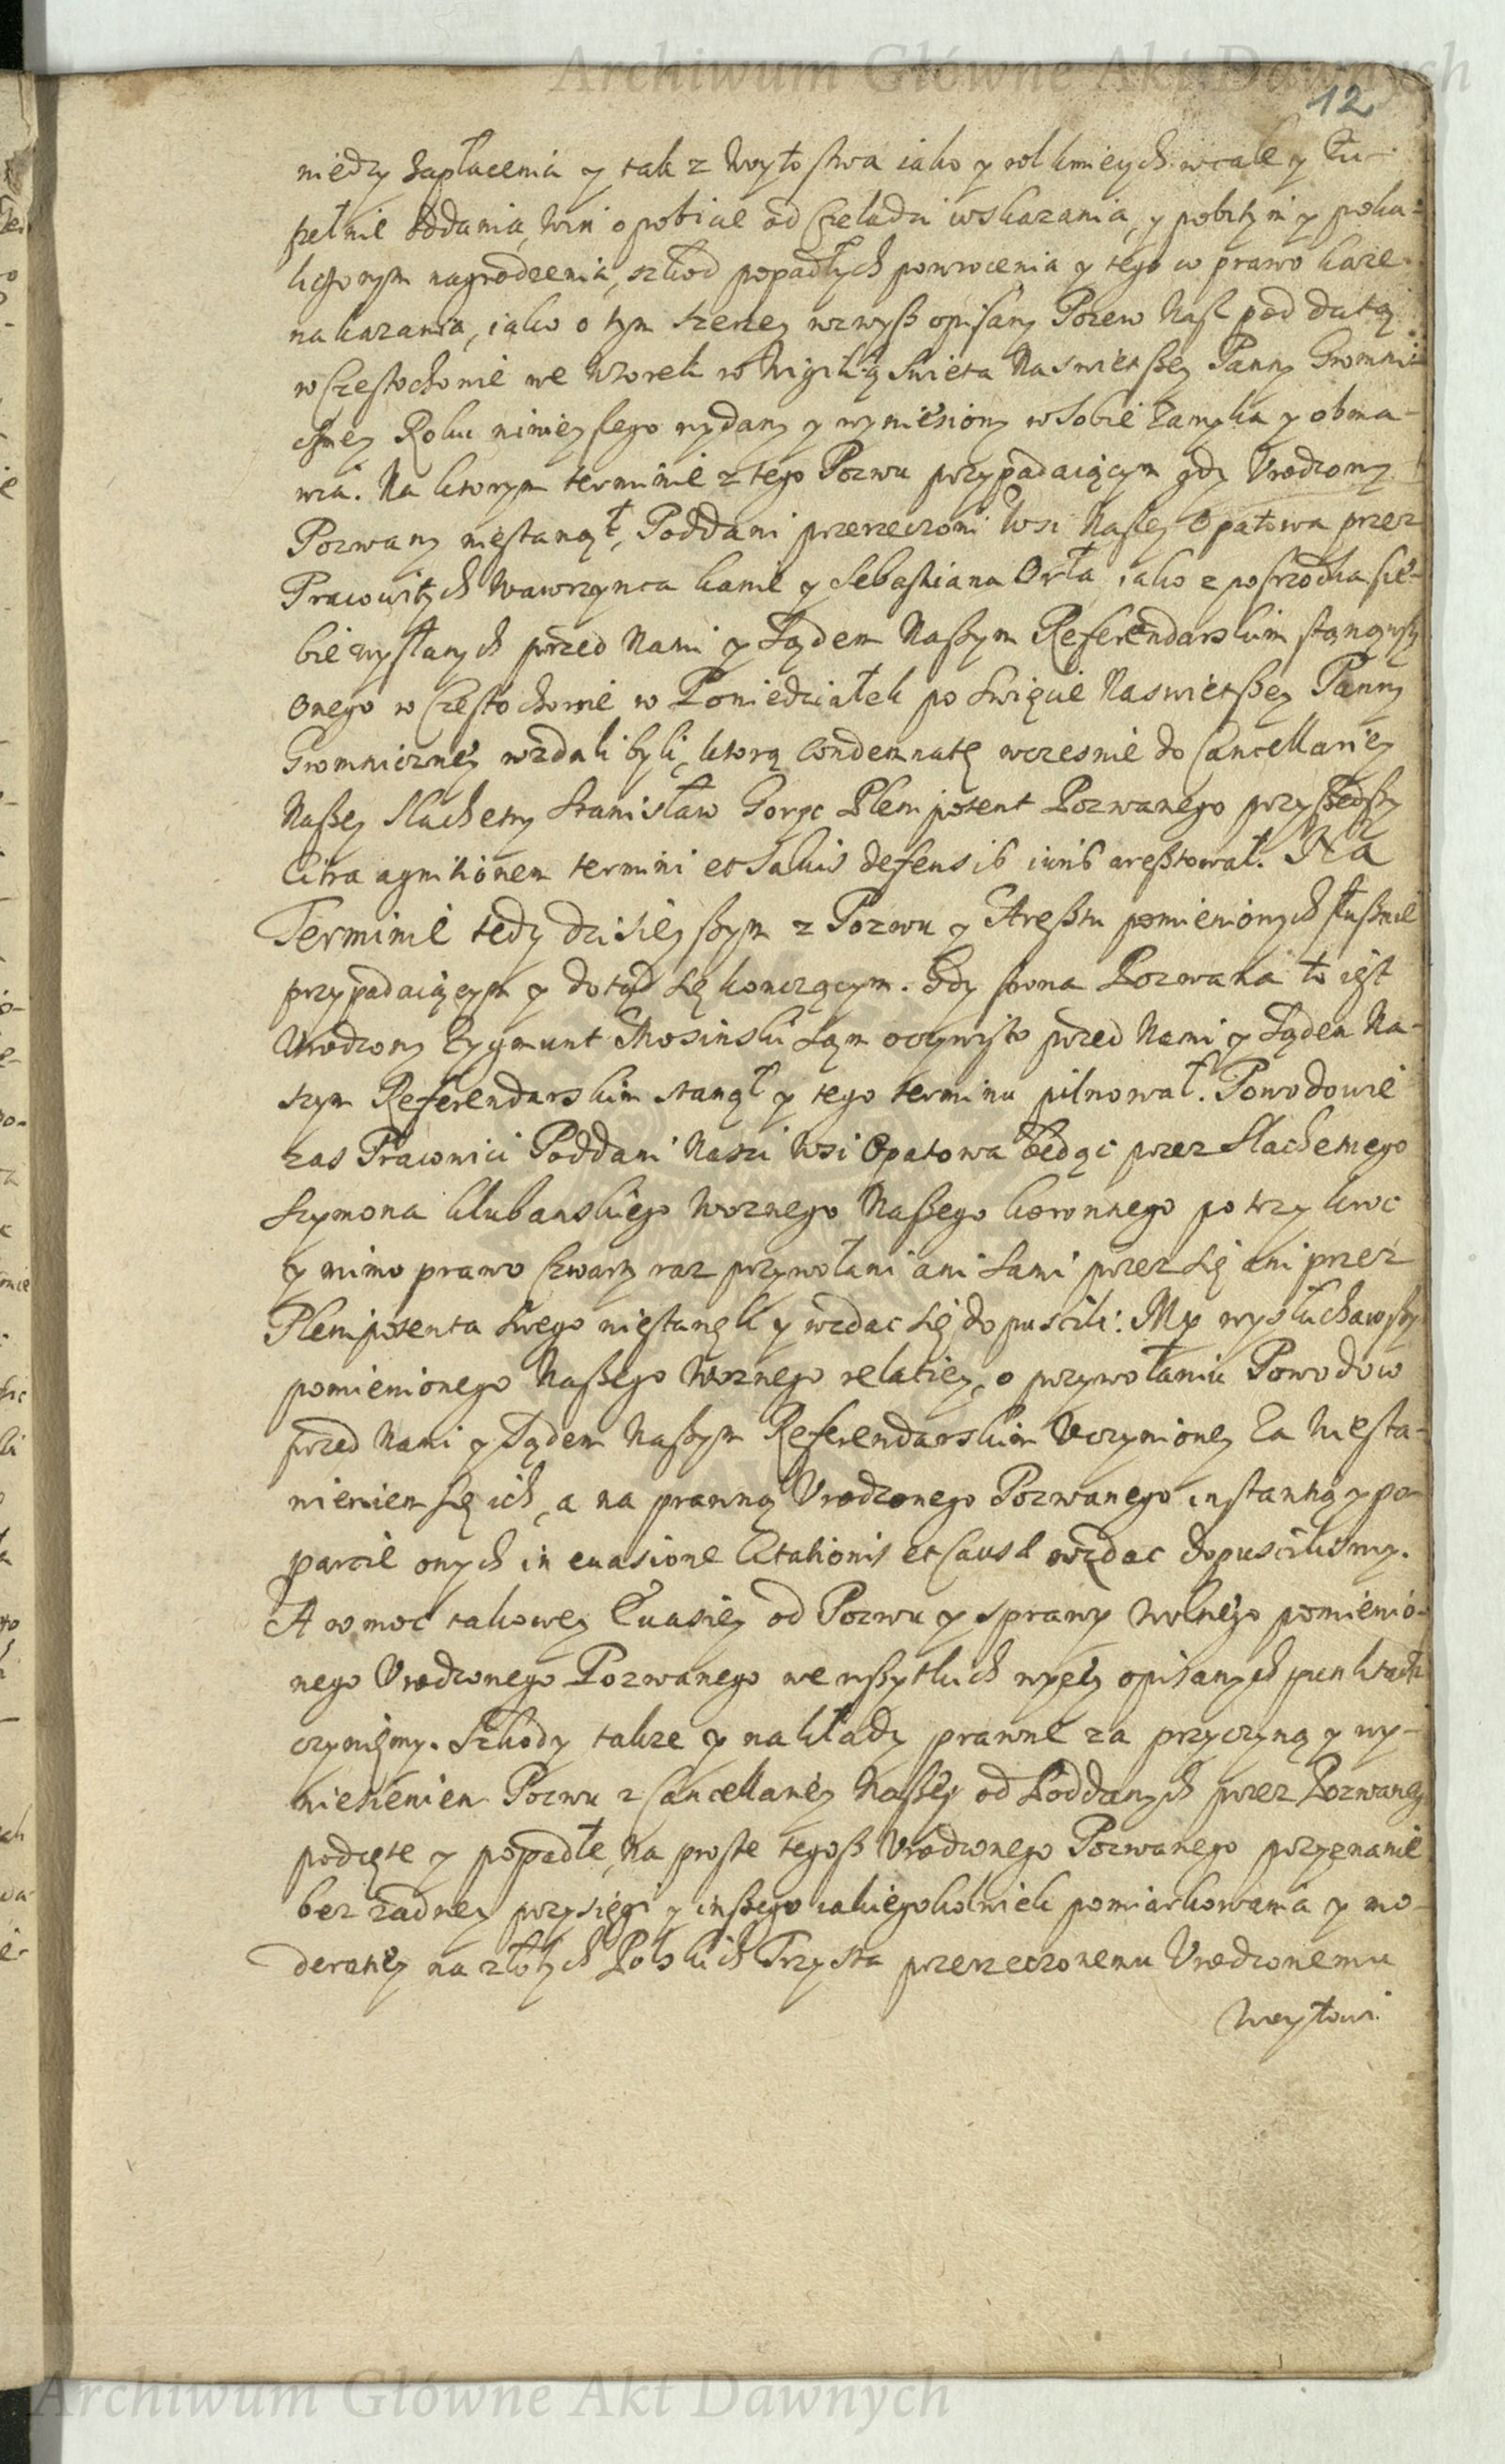 Archiwum Główne Akt Dawnych
12
niedzy zapłacenia y tak z Woytostwa iako y rol kmieych wcale y Zu-
pełnie oddania, win o pobicie od Czeladzi wskazania, y pobitym y poka-
liczonym nagrodzenia, szkod popadłych powrocenia y tego co prawo każe
nakazania, iako o tym szerzey wzwyß opisany Pozew Nasz pod datą
w Częstochowie we Wtorek w Wigilią Swięta Naswietßey Panny Gromni-
czney Roku ninieyszego wydany y wyniesiony w sobie zamyka y obma-
wia. Na ktorym terminie z tego Pozwu przypadaiącym gdy Vrodzony
Pozwany niestanął, Poddani przerzeczoni Wsi Naszey Opatowa przez
Pracowitych Wawrzynca Kanie y Sebastiana Orła, iako z posrzodka sie-
bie wysłanych przed Nami y Sądem Naßym Referendarskim stanąwßy
onego w Częstochowie w Poniedziałek po Swięcie Naswietßey Panny
Gromniczney wzdali byli, ktorą condemnatę wczesnie do Cancellariey
Naßey Slachetny Stanisław Goryc Plenipotent Pozwanego przyßedßy
Citra agnitionem termini et salvis defensib iurib areßtował. Na
Terminie tedy dzisieyßym z Pozwu y Areßtu pomienionych słußnie
przypadaiącym y dotąd się konczącym. Gdy strona Pozwana to iest
Vrodzony Zygmunt Mosinski sąm oczywisto przed Nami y Sądem Na-
szym Referendarskim stanął y tego terminu pilnował. Powodowie
zas Pracowici Poddani Naszi Wsi Opatowa będąc przez Slachetnego
Szymona Klubanskiego Woznego Naßego koronnego po trzy kroc
y mimo prawo Czwarty raz przywołani ani sami przez się ani przez
Plenipotenta swego niestanęli y wzdac się dopuscili: My wysłuchawßy
pomienionego Naßego Woznego relatiey, o przywołaniu Powodow
przed Nami y Sądem Naßym Referendarskim Vczynioney Za Niesta-
nieniem się ich, a na prawną Vrodzonego Pozwanego instantią y po-
parcie onych in euasione Citationis et Causae wzdac dopuscilismy.
A w moc takowey Euasiey od Pozwu y sprawy wolnego pomienio-
nego Vrodzonego Pozwanego we wßytkich wyżey opisanych punktach
czyniemy. Szkody także y nakłady prawne za przyczyną y wy-
niesieniem Pozwu z Cancellariey Naßey od Poddanych przez Pozwanego
podięte y popadłe, na proste tegoß Vrodzonego Pozwanego przyznanie
bez żadney przysięgi y inßego iakiegokolwiek pomiarkowania y mo-
deratiey na złotych Polskich Trzysta przerzeczonemu Vrodzonemu
Woytowi
Archiwum Główne Akt Dawnych